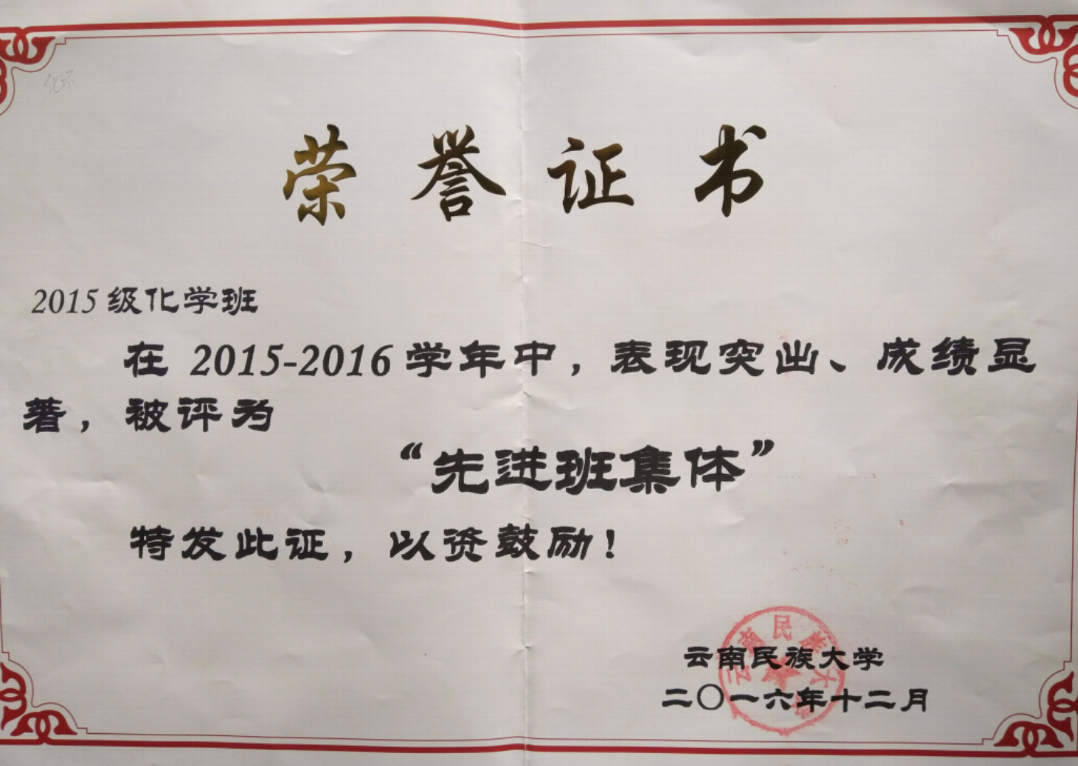 化环
荣誉证书
2015级化学班
在 2015-2016 学年中，表现突出、成绩显
著，被评为
“先进班集体”
特发此证，以资鼓励！
云南民族大学
云南民族大学
二〇一六年十二月